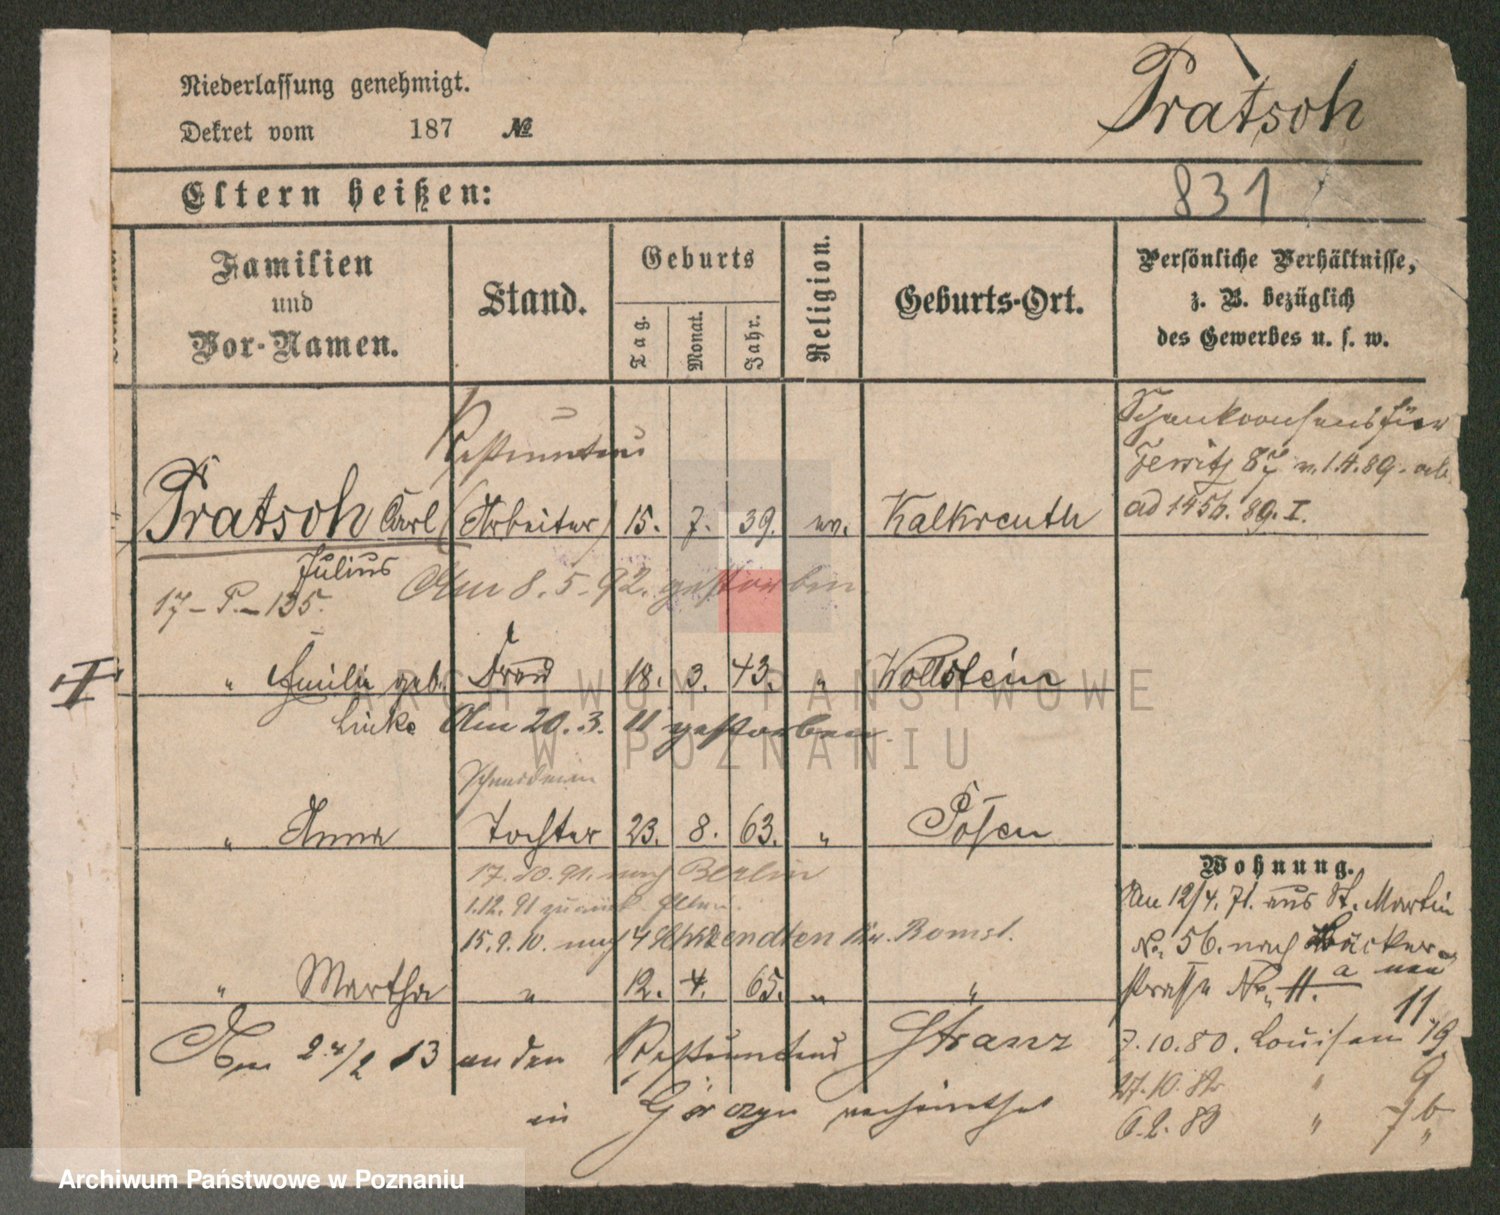 Niederlassung genehmigt.
Dekret vom 187 №
Pratsch
831
Eltern heißen:
Familien
und
Vor-Namen.
Stand.
Geburts
Tag.
Monat.
Jahr.
Religion.
Geburts-Ort.
Persönliche Verhältnisse,
z. B. bezüglich
des Gewerbes u. s. w.
Restaurateur
Pratsch Carl (Arbeiter) 15. 7. 39. ev. Kalkreuth
Julius
17 - P. - 135.
Am 8. 5. 92. gestorben
Schankconsens für
Jersitz 87 v. 1.4.89. ab
ad 89. I.
" Emilie geb. Frau 18. 3. 43. " Wollstein
Linke Am 20. 3. 11 gestorben.
Schneiderin
" Anna Tochter 23. 8. 63. " Posen
17. 10. 91. nach Berlin
1.12. 91 zurück. Eltern.
15. 9. 10. nach Kr. Bomst.
" Martha " 12. 4. 65. " "
Am 24/2 13 an den Restaurateur Franz
in Görczyn verheirathet
Wohnung.
Am 12/4. 71. aus St. Martin
No. 56. nach Bäcker-
strasse No. 11. a neu
11
7. 10. 80. Louisen 19.
27. 10. 82 " 9
6. 2. 83 " 7b
Archiwum Państwowe
w Poznaniu
Archiwum Państwowe w Poznaniu